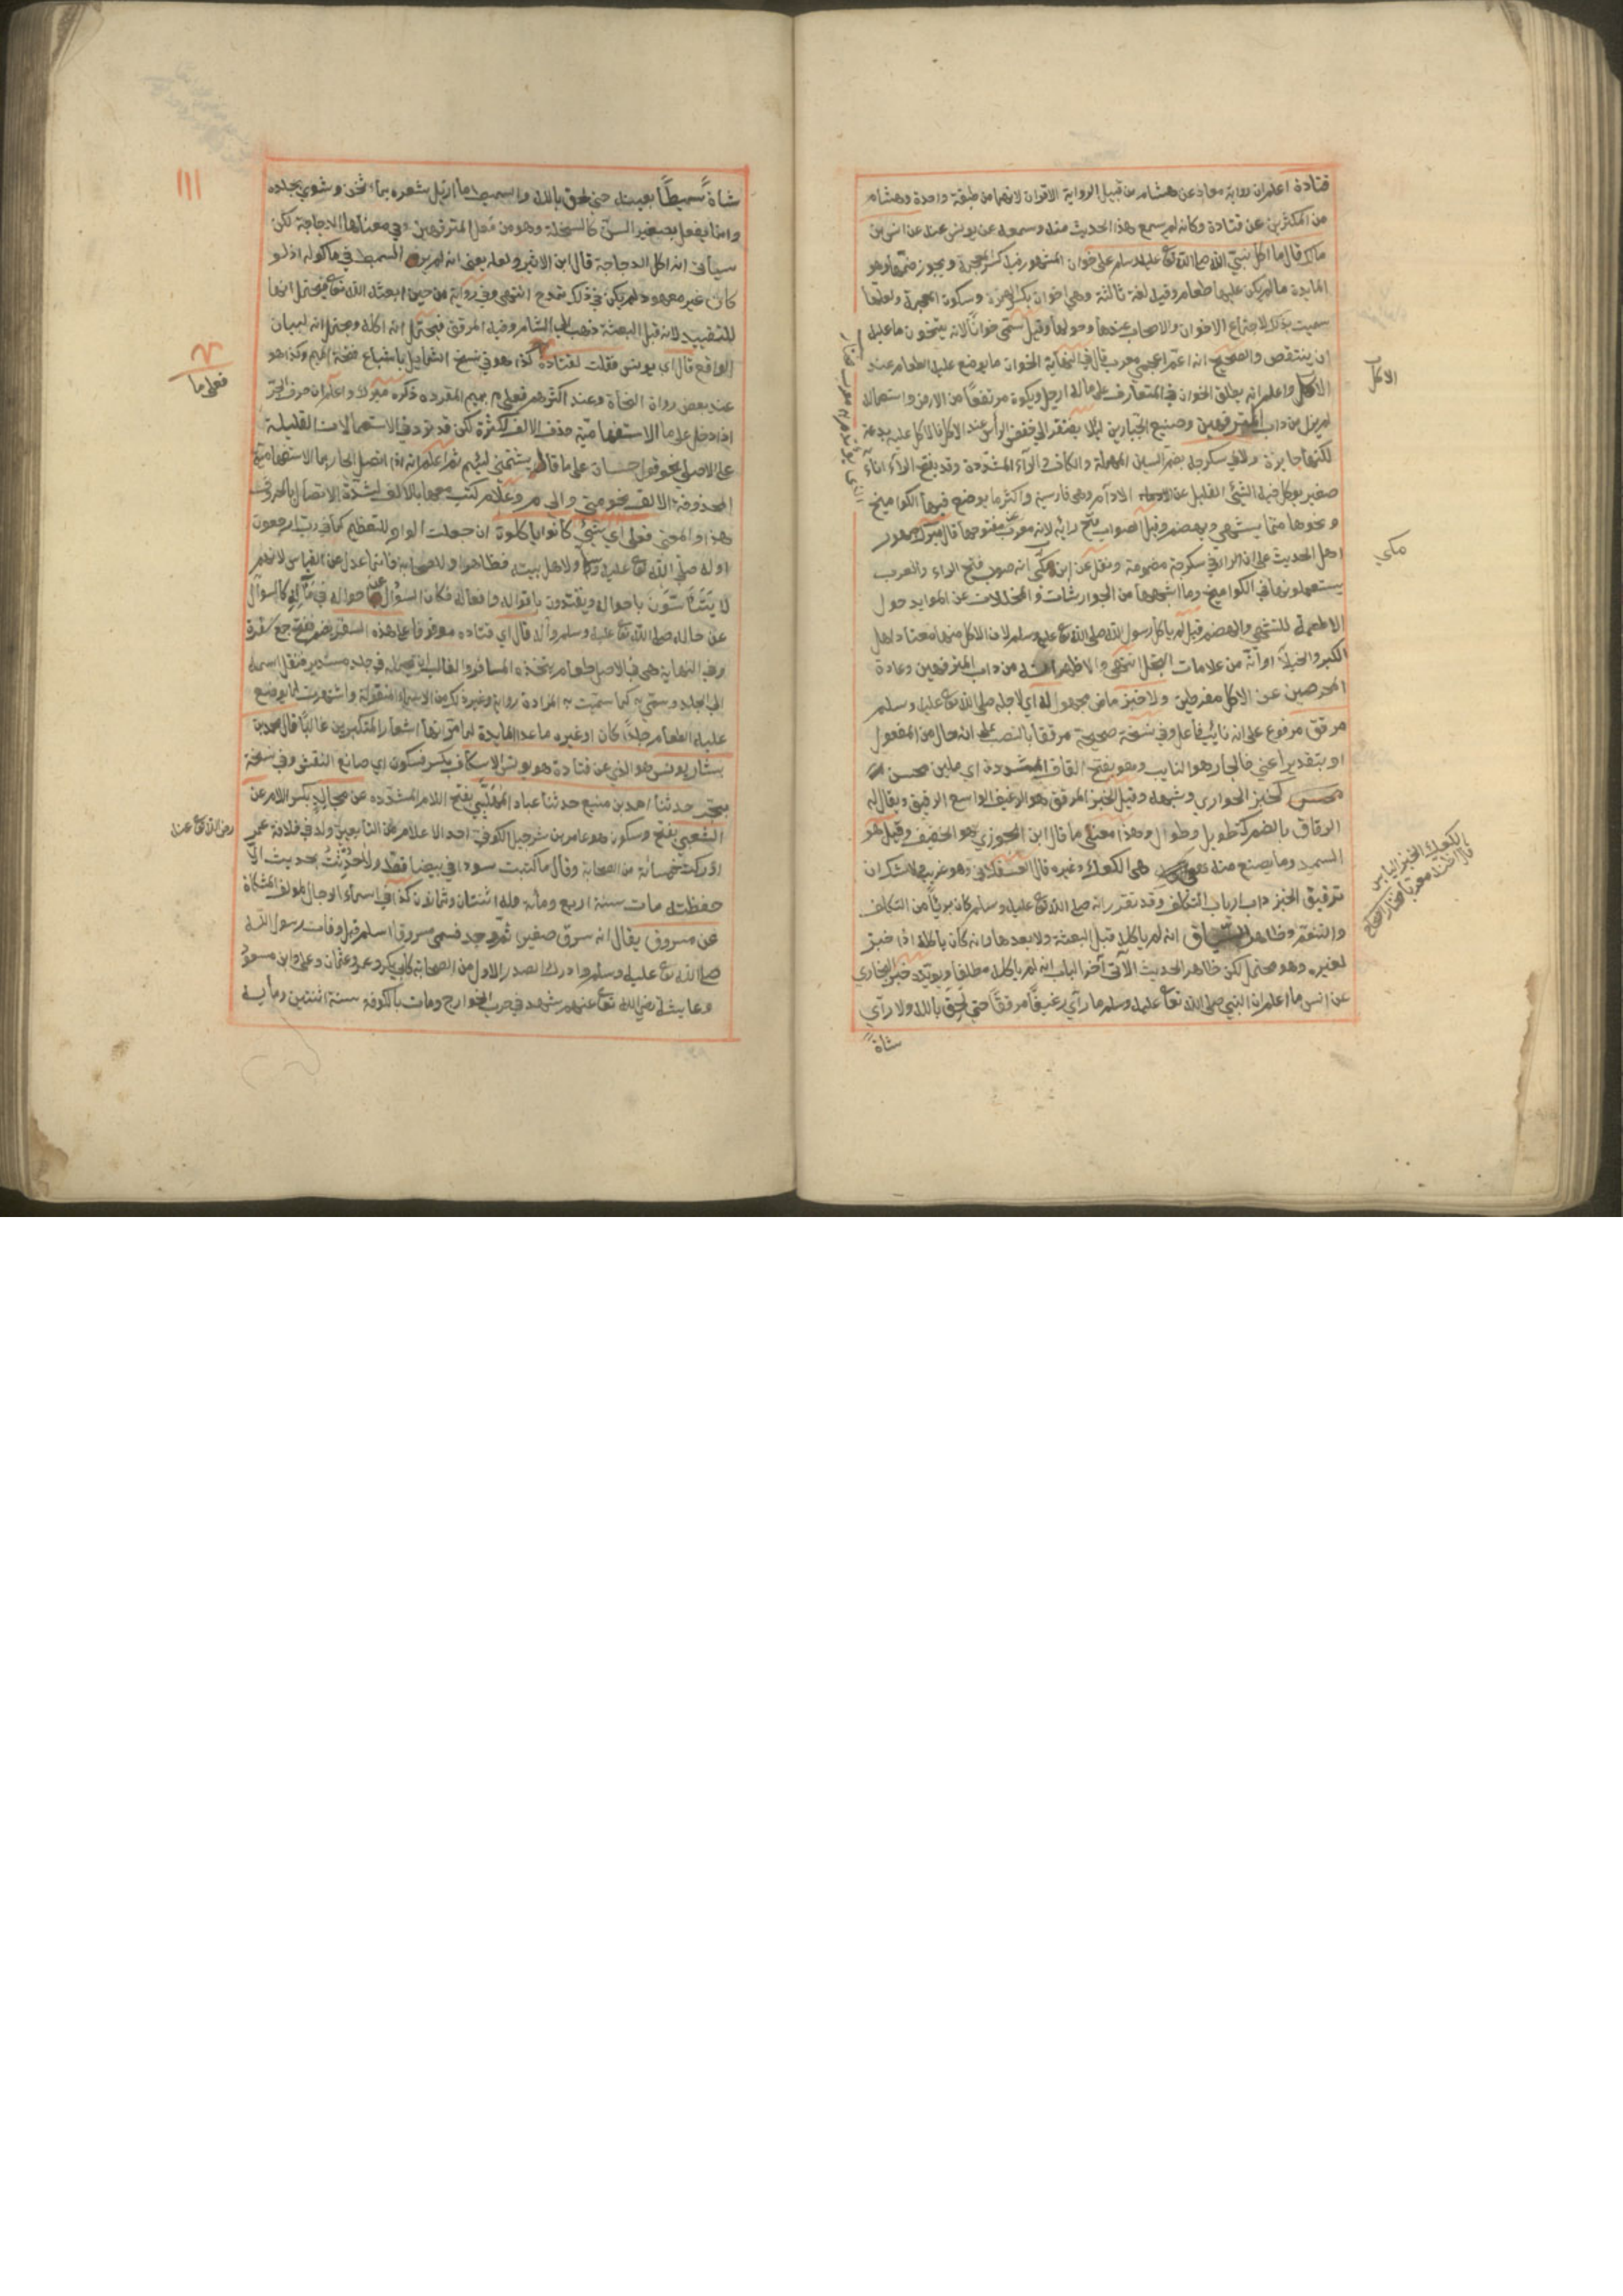 قتادة اعلم ان رواية معاذ عن هشام من قبيل الرواية الاقران لانهما من طبقة واحدة وهشام
من المكثرين عن قتادة وكانه لم يسمع هذا الحديث منه وسمعه عن يونس عنه عن انس بن
مالك قال ما اكل نبي الله صلى الله تع عليه وسلم على خوان المشهور فيه كسر المعجمة ويجوز ضمها وهو
المايدة ما لم يكن عليها طعام وقيل لغة ثالثة وهي اخوان بكسر الهمزة وسكون المعجمة ولعلها
سميت بذلك لاجتماع الاخوان والاصحاب عندها وحولها وقيل سمي خوانا لانه يتخون ما عليه
اي ينتقص والصحيح انه اسم اعجمي معرب قال في النهاية الخوان ما يوضع عليه الطعام عند
الاكل واعلم انه يطلق الخوان في المتعارف على ماله ارجل ويكون مرتفعا من الارض واستعماله
لم يزل من داب المترفهين وصنيع الجبارين ليلا يفتقر الي خفض الرأس عند الاكل فالاكل عليه بدعة
لكنها جايزة ولا في سكرجة بضم السين المهملة والكاف والرآء المشددة وقد يفتح الرآء اناء
صغير يوكل فيه الشئ القليل من الادام وهي فارسية واكثر ما يوضع فيها الكواميخ
ونحوها مما يشهي ويهضم وقيل الصواب فتح رائه لانه معرب عن مفتوحها قال ميرك جمهور
اهل الحديث على ان الراء في سكرجة مضمومة ونقل عن ابن مكي انه صوب فتح الراء والعرب
يستعملونها في الكواميخ وما اشبهها من الجوارشات والمخللات عن الموايد حول
الاطعمة للتشهي والهضم قيل لم ياكل رسول الله صلى الله تع عليه وسلم لان الاكل منها معتاد اهل
الكبر والخيلآ او انه من علامات البخل انتهى والاظهر انه من داب المترفهين وعادة
الحرصين عن الاكل مفرطين ولا خبز ماض مجهول له اي لاجله صلى الله تع عليه وسلم
مرقق مرفوع على انه نائب فاعل وفي نسخة صحيحة مرققا بالنصب على انه حال من المفعول
او بتقدير اعني فالجار هو النايب وهو بفتح القاف المشددة اي ملين محسن
كخبز الحواري وشبهه وقيل الخبز المرقق هو الرغيف الواسع الرقيق ويقال له
الرقاق بالضم كطويل وطوال وهذا معنى ما قال ابن الجوزي هو الخفيف وقيل هو
السميد وما يصنع منه هي الكعك وغيره قال العسقلاني وهو غريب ولا شك ان
ترقيق الخبز داب ارباب التكلف وقد تقرر انه صلى الله تع عليه وسلم كان بريئا من التكلف
والتنعم وظاهر السياق انه لم ياكله قبل البعثة ولا بعدها وانه كان ياكله اذا خبز
لغيره وهو محتمل لكن ظاهر الحديث الآتي آخر الباب انه لم ياكله مطلقا ويؤيده خبر البخاري
عن انس ما اعلم ان النبي صلى الله تعا عليه وسلم ما رآى رغيفا مرققا حتي لحق بالله ولا رآي
شاة
الاكل
مكي
الكعك الخبز اليابس
شاة سميطا بعينه حتي لحق بالله والسميط ما ازيل شعره بماء سخن وشوي بجلده
وانما يفعل بصغير السن كالسخلة وهو من فعل المترفهين وفي معناها الدجاجة لكن
سيأتي انه اكل الدجاجة قال ابن الاثير ولعله يعني انه لم ير السميط في ماكوله اذ لو
كان غير معهود لم يكن في ذلك تمدح انتهى وفي رواية من حين ابعثه الله تعا فيحتمل انها
للتقييد لانه قبل البعثة ذهب الي الشام وفيه المرقق فيحتمل انه اكله ويحتمل انه لبيان
الواقع قال اي يونس فقلت لقتادة كذا هو في نسخ الشمايل باشباع فتحة الميم وكذا هو
عند بعض رواة البخاري وعند اكثرهم فعلى م بميم المفردة ذكره ميرك واعلم ان حرف الجر
اذا دخل على ما الاستفهامية حذف الالف لكثرة لكن قد يرد في الاستعمالات القليلة
على الاصل نحو قول حسان على ما قام يشتمني لئيم ثم اعلم انه اذا اتصل الجار بما الاستفهامية
المحذوفة الالف نحو حتى م والى م وعلى م كتب معها بالالف لشدة الاتصال بالحروف
هذا والمعنى فعلى اي شئ كانوا ياكلون ان جعلت الواو للتعظيم كما في رب ارجعون
او له صلى الله تع عليه وسلم ولاهل بيته فظاهر او للصحابة فانما عدل عن القياس لانهم
لا يتأسون باحواله ويقتدون باقواله وافعاله فكان السؤال عن احواله في مآله كالسوال
عن حاله صلى الله تع عليه وسلم وآله قال اي قتادة موقوفا على هذه السفر بضم ففتح جمع سفرة
وفي النهاية هي في الاصل طعام يتخذه المسافر والغالب انه يحمله في جلد مستدير فنقل اسمه
الي الجلد وسمي به كما سميت به المزادة راوية وغير ذلك من الاسماء المنقولة واشتهرت لما يوضع
عليه الطعام جلدا كان او غيره ماعدا المايدة لما مر انها شعار المتكبرين غالبا قال محمد بن
بشار يونس هو الذي عن قتادة هو يونس الاسكاف بكسر فسكون اي صانع النقش وفي نسخة
حدثنا احمد بن منيع حدثنا عباد المهلبي بفتح اللام المشددة عن مجالد بكسر اللام عن
الشعبي بفتح وسكون هو عامر بن شرحبيل الكوفي احد الاعلام من التابعين ولد في خلافة عمر
ادركت خمسمائة من الصحابة وقال ما كتبت سوداء في بيضا قط ولا حدثت بحديث الا
حفظته مات سنة اربع ومائة وله اثنتان وثمانون كذا في اسماء الرجال لمولف المشكاة
عن مسروق يقال انه سرق صغيرا ثم وجد فسمي مسروقا اسلم قبل وفات رسول الله
صلى الله تع عليه وسلم وادرك الصدر الاول من الصحابة كابي بكر وعمر وعثمان وعلى وابن مسعود
وعايشة رضي الله تعا عنهم شهد في حرب الخوارج ومات بالكوفة سنة اثنتين
١١١
فعلى ما
رضي الله تع عنه